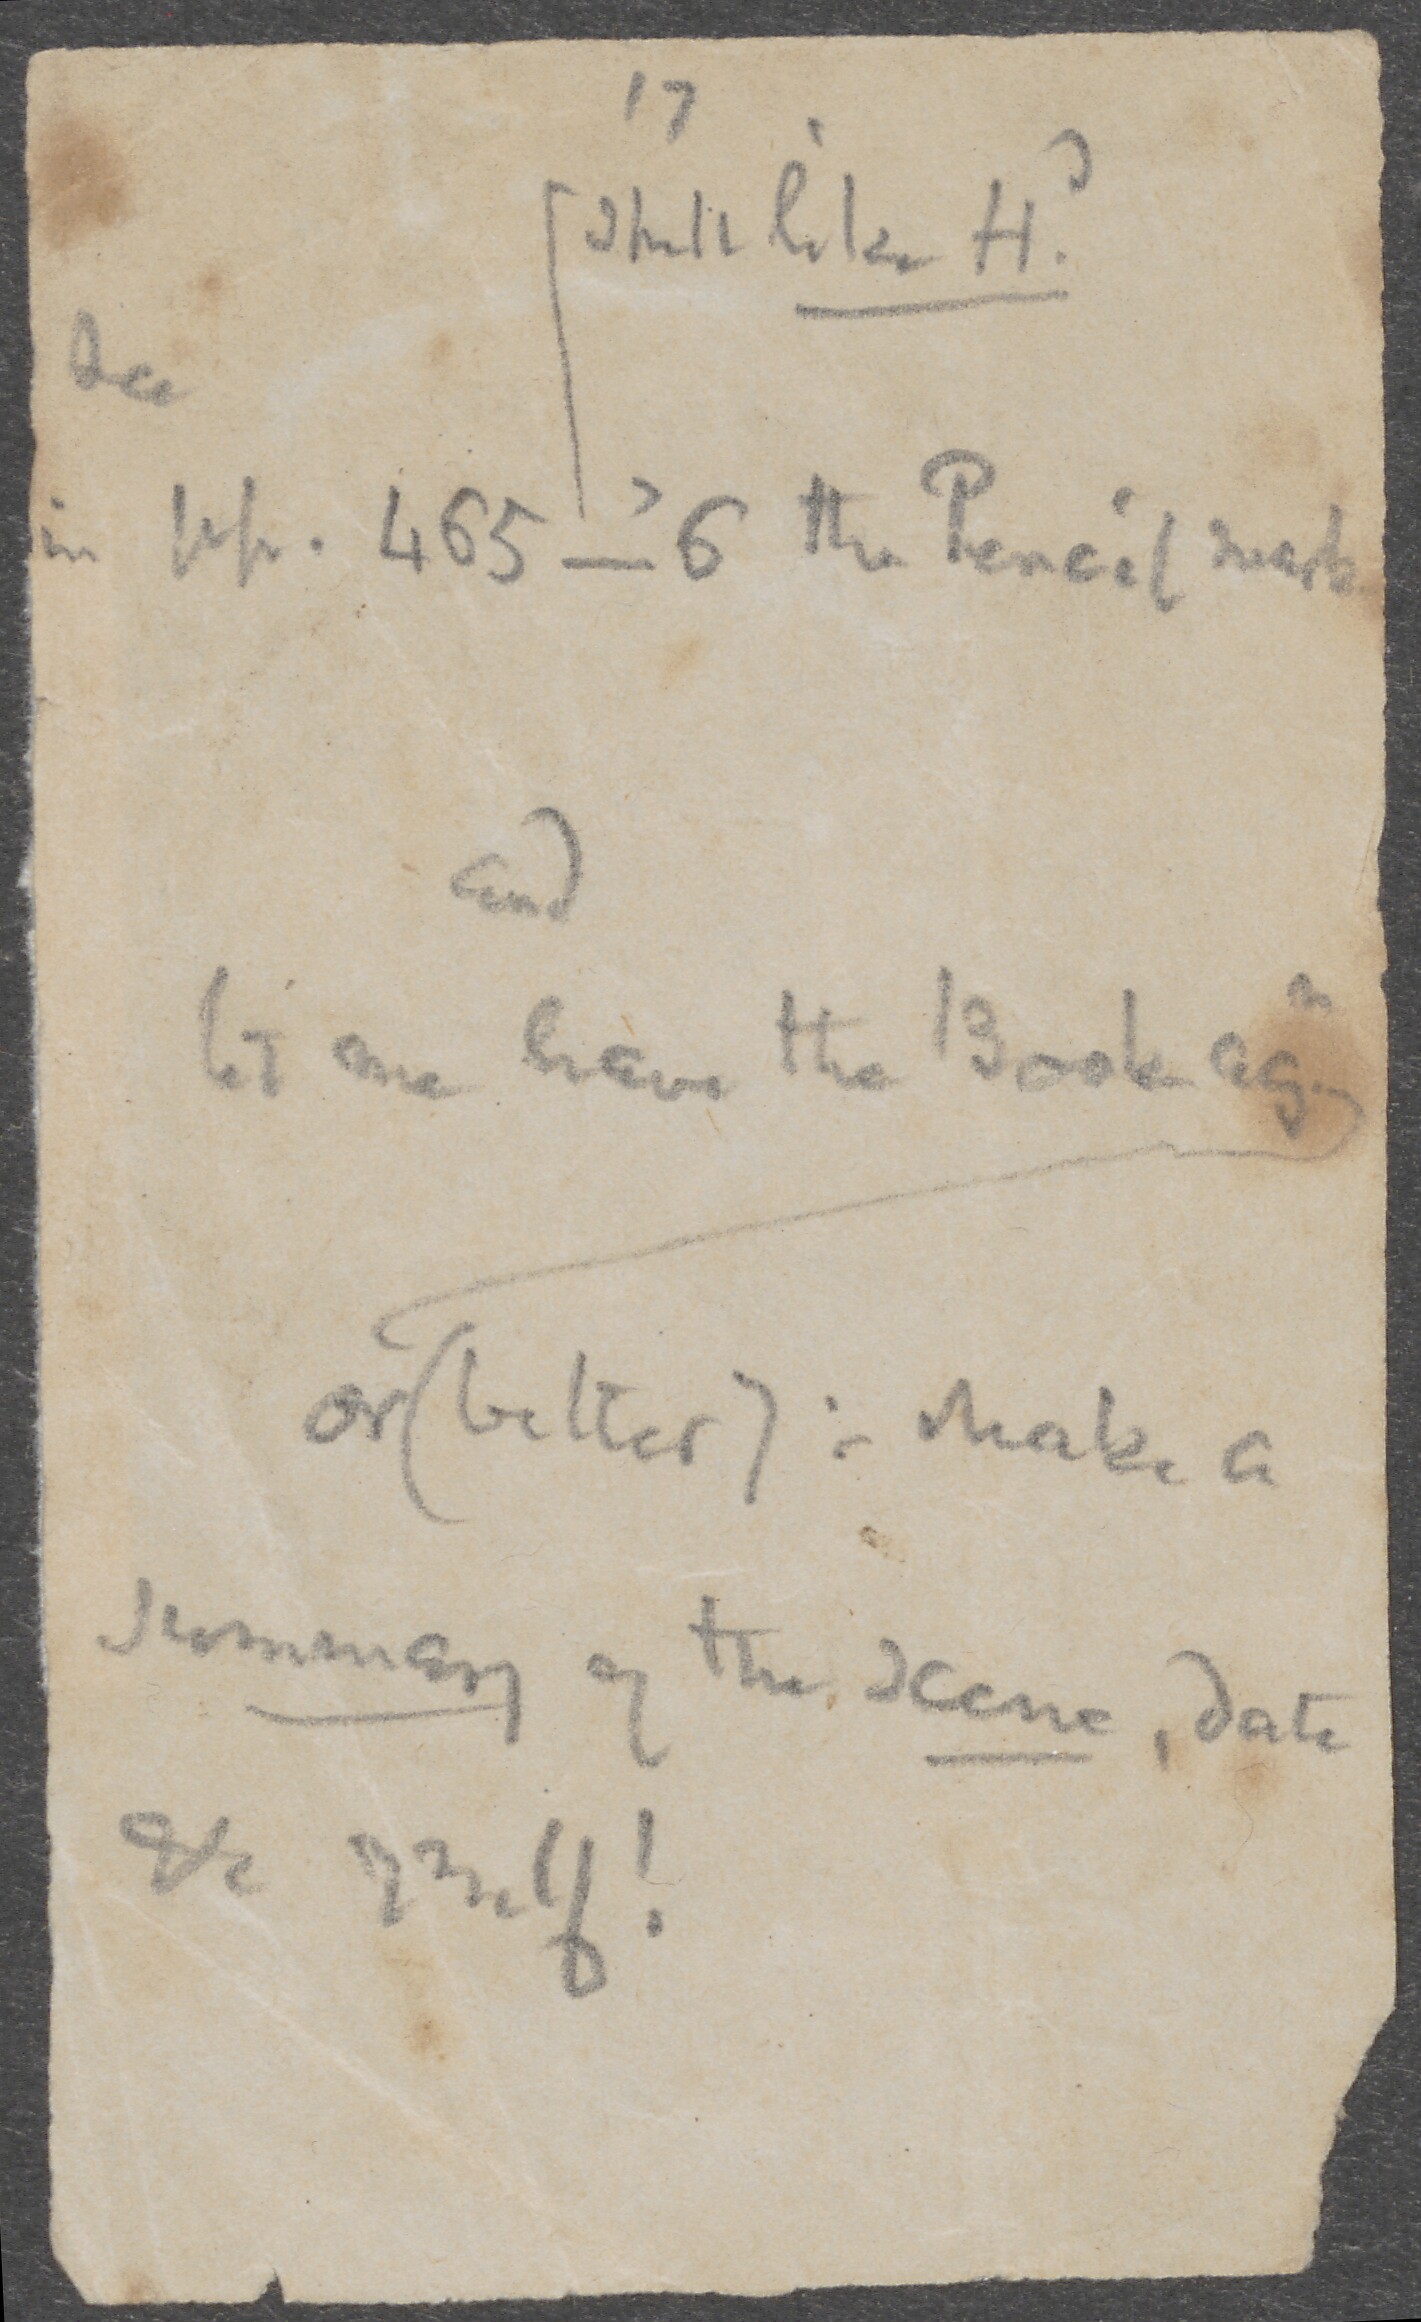 17
like H.
See
in pp. 465–6 the Pencil mark
and
let me have the Book agn
or (better) :– Make a
summary of the scene, date
&c yrself!